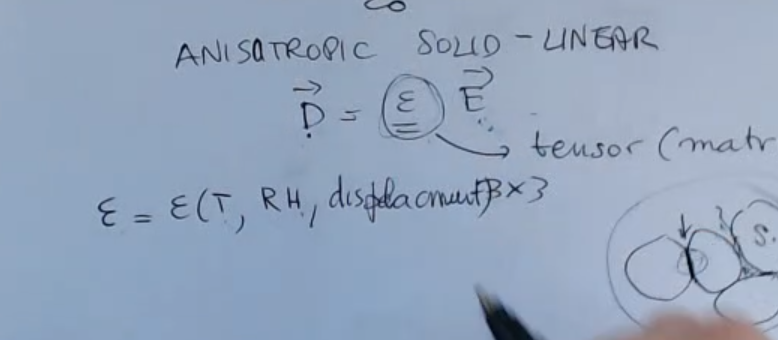 ANISOTROPIC SOLID - LINEAR
D = ε E
tensor (matr
3×3
ε = ε(T, RH, displacment)
S.